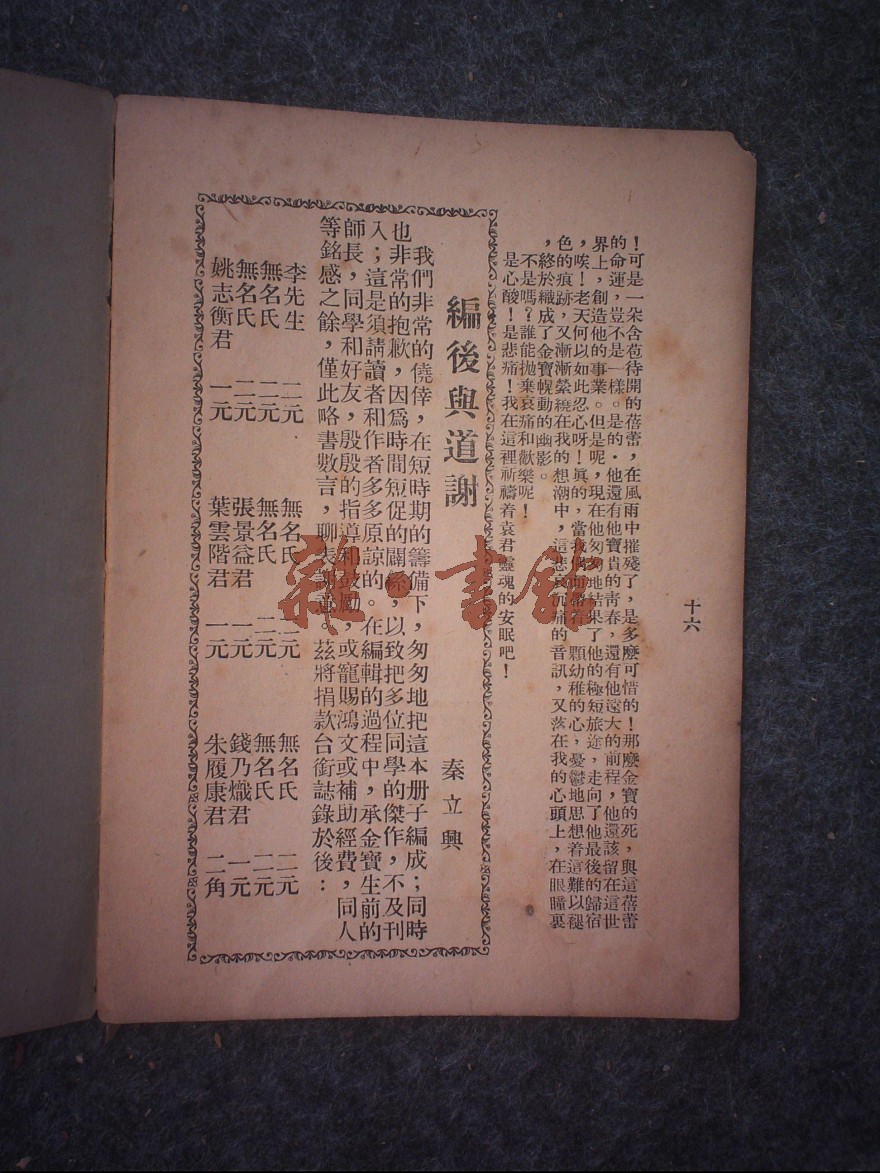 十六
！可是一朵含苞待開的蓓蕾，在風雨中摧殘了，是多麼可惜的！那麼金寶的死，與這蓓蕾
的命運，豈不是一樣。是的．他還有他寶貴的青春，還有他遠大的前程，他還該留在這世
界上，創造他的事業。但是呢，現在他匆匆地結果了他的極短旅途，走向了他最後的歸宿
，唉！老天何以如此忍心呀！眞的，當我顆幼稚的心，憂鬱地思想着這難以褪
色的痕跡，又漸漸縈繞在我的想潮中，這悲哀沉痛的音訊，又落在我的心頭上，在眼瞳裏
，終於織成了金寶幌動的幽影。
不是嗎？誰能拋棄哀痛和歡樂呢！
是心酸！是悲痛！我在這裡祈禱着袁君靈魂的安眠吧！
編後與道謝
秦立興
我們非常的僥倖，在短時期的籌備下，匆匆地把這本册子編成；同時
也非常的抱歉，因爲時間短促的關係，以致把多位同學的傑作，不及刊
入；這是須請讀者和作者多多原諒的。在編輯的過程中，承金寶生前的
師長，同學和好友，殷殷的指導和鼓勵，或寵賜鴻文或補助經費，同人
等銘感之餘，僅此略書數言，聊表謝意。茲將捐款台銜誌錄於後：
李先生 二元 無名氏 二元 無名氏 二元
無名氏 二元 無名氏 二元 無名氏 二元
無名氏 二元 張景益君 一元 錢乃熾君 一元
姚志衡君 一元 葉雲階君 一元 朱履康君 二角
雜·書館